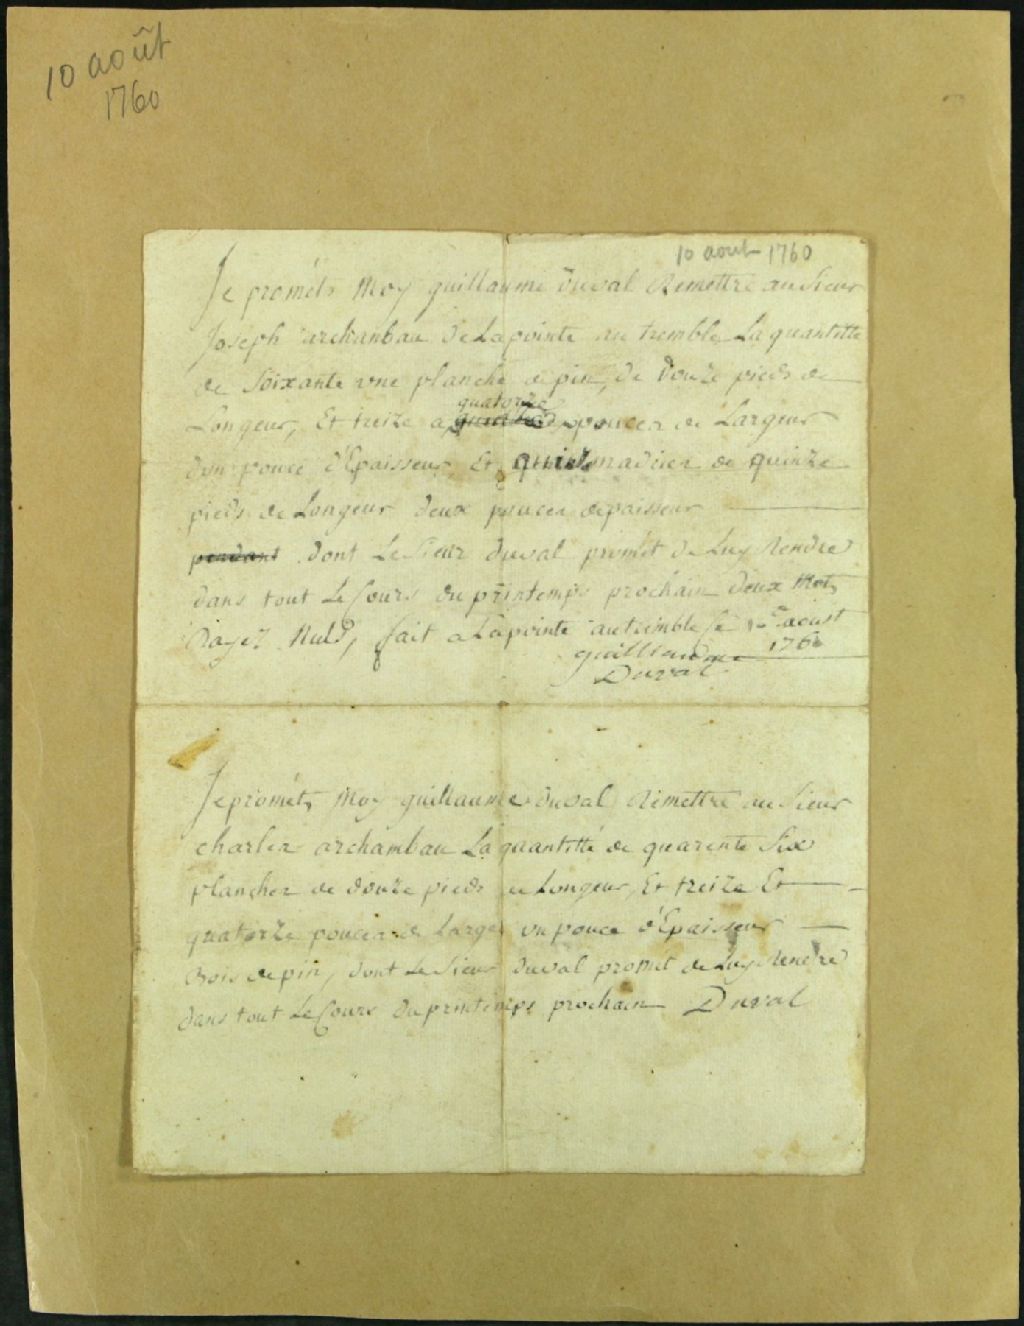 10 août
1760
10 aout 1760
Je prométs Moy guillaume Duval Remettre au Sieur
Joseph archanbau de Lapointe au tremble, La quantitté
de Soixante une planche de pin, de Douze pieds de
Longeur, Et treize a quatorze pouces de Largeur
dun pouce d'Epaisseur Et madrier de quinze
pieds de Longeur deux pouces depaisseur
pendant dont Le Sieur duval promét de Luy Rendre
dans tout Le Cours du printemps prochain deux Mots
Rayez Nuls, fait a Lapointe autrimble Ce aoust
1760
guillaume
Duval
Je prométs Moy guillaume Duval Remettre au Sieur
charles archambau La quantitté de quarente Six
planches de douze pieds de Longeur, Et treize Et
quatorze pouces de Large un pouce d'Epaisseur
Bois de pin, dont Le Sieur duval promét de Luy Rendre
dans tout Le Cours du printemps prochain Duval